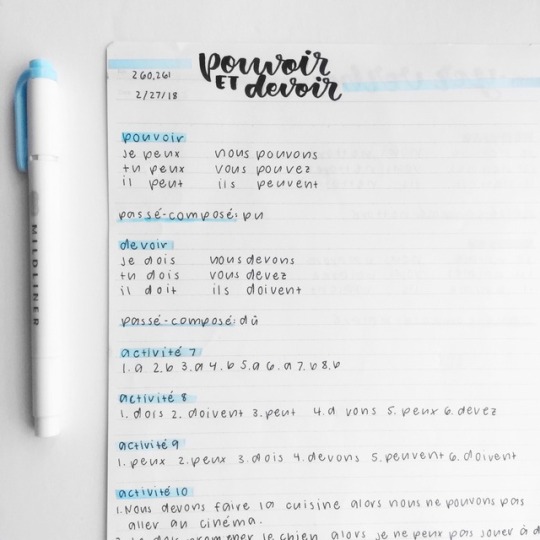 260,261
2/27/18
pouvoir
ET devoir
pouvoir
je peux nous pouvons
tu peux vous pouvez
il peut ils peuvent
passé-composé: pu
devoir
je dois nous devons
tu dois vous devez
il doit ils doivent
passé-composé: dû
activité 7
1. a 2. b 3. a 4. b 5. a 6. a 7. b 8. b
activité 8
1. dois 2. doivent 3. peut 4. d vons 5. peux 6. devez
activité 9
1. peux 2. peux 3. dois 4. devons 5. peuvent 6. doivent
activité 10
1. Nous devons faire la cuisine alors nous ne pouvons pas
aller au cinéma.
dois promener le chien alors je ne peux pas jouer à
MILDLINER